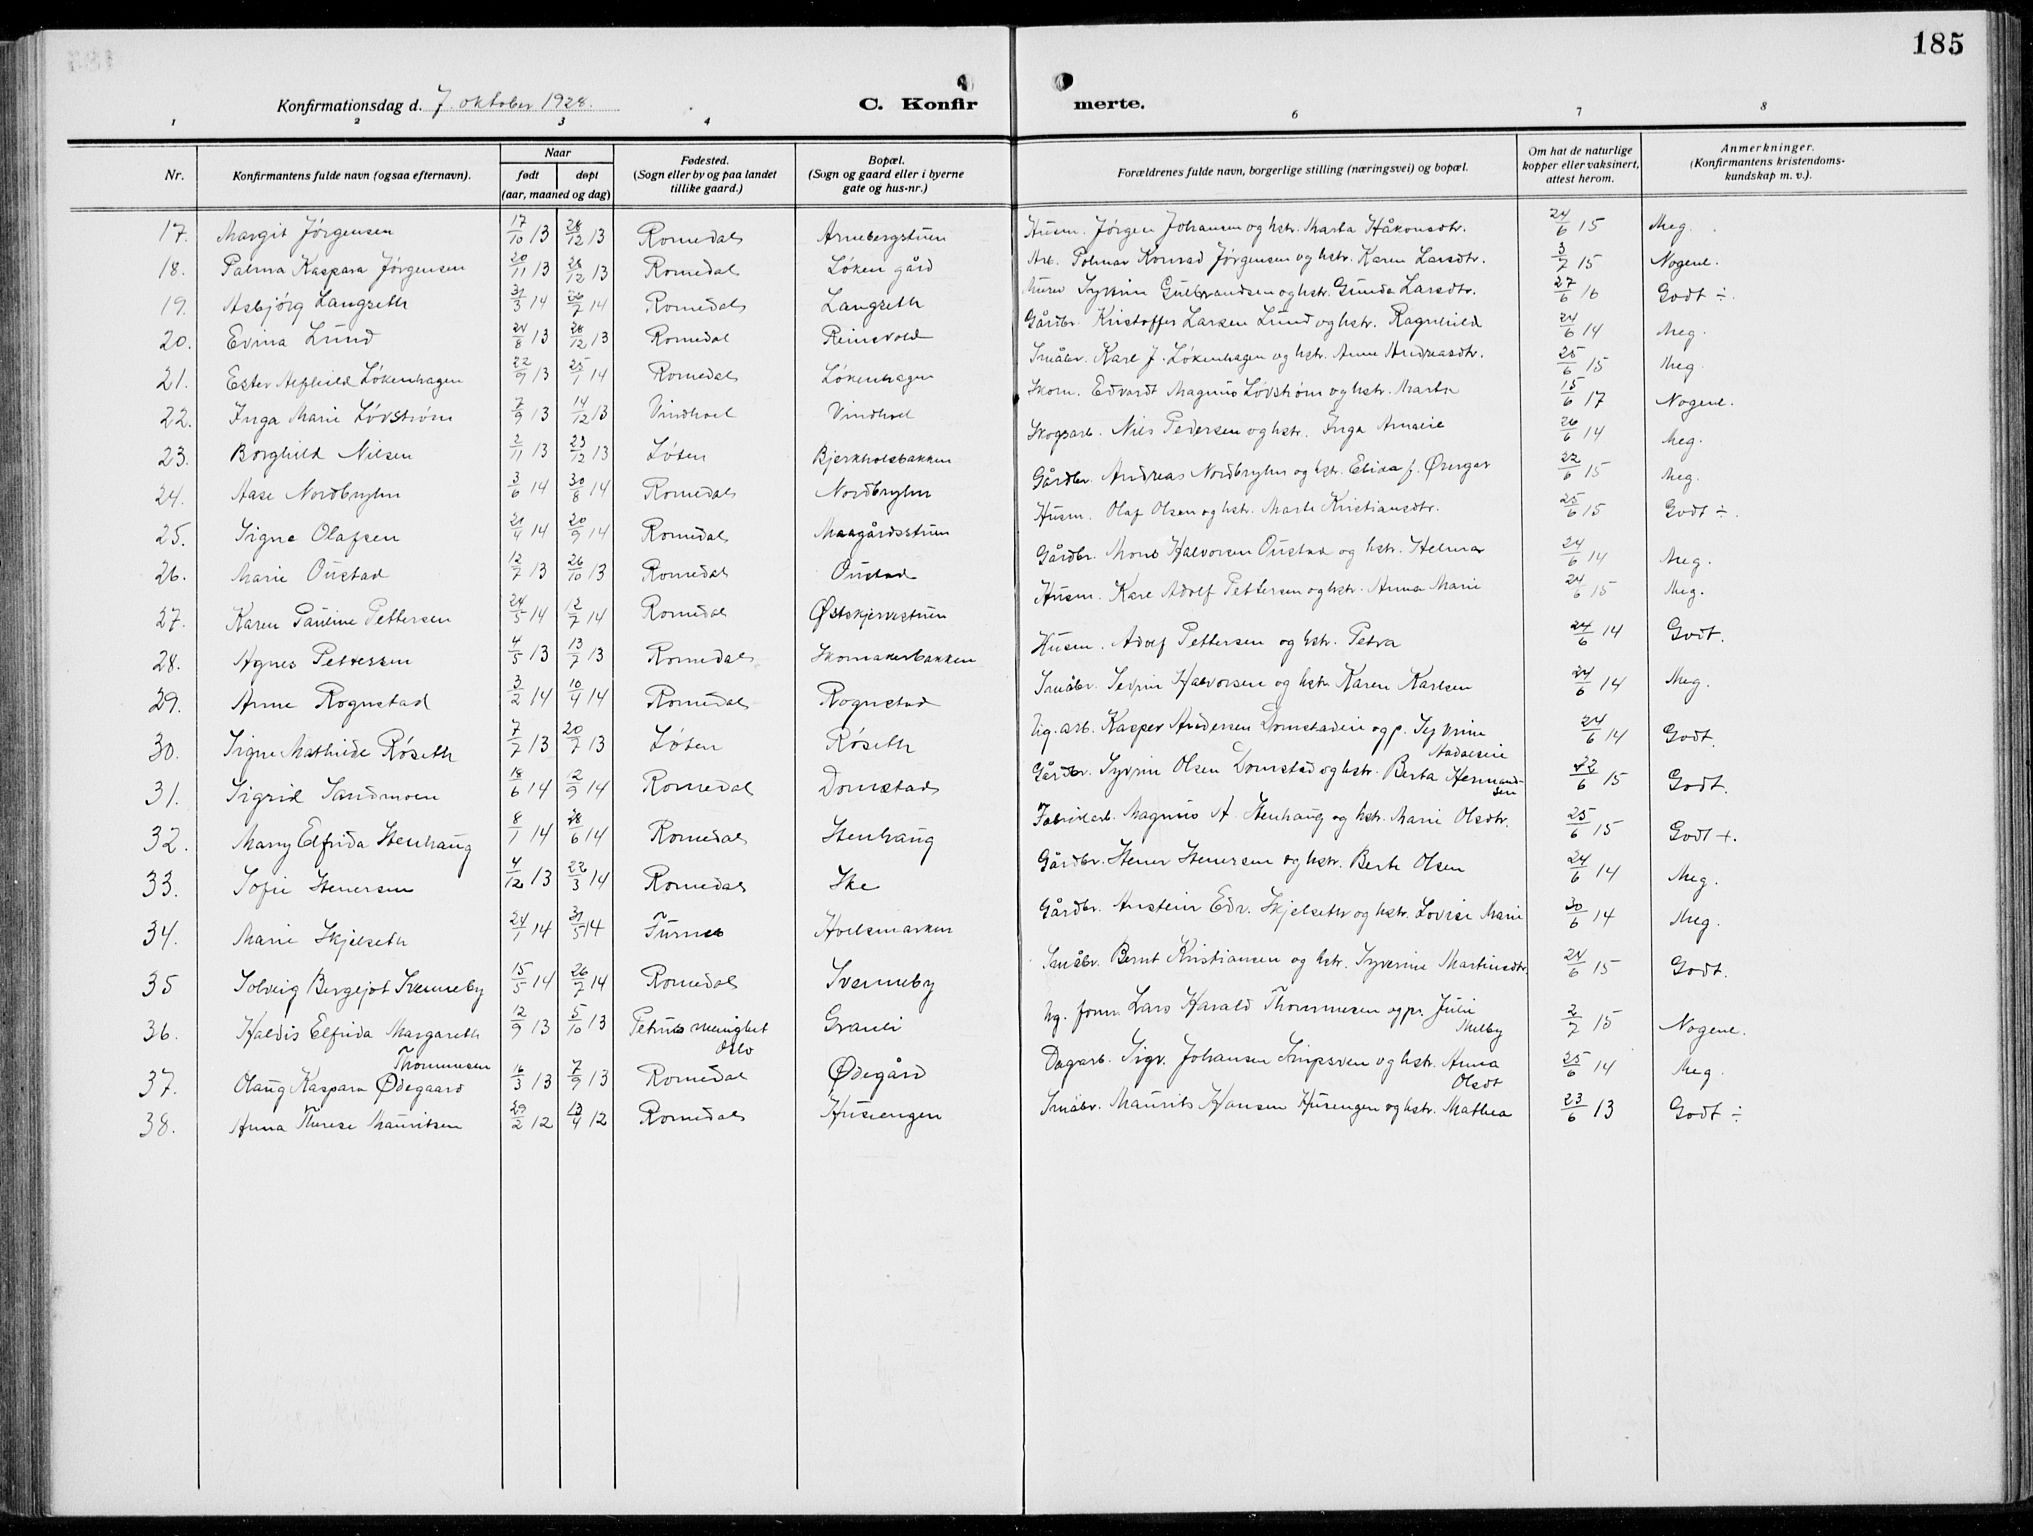 185
Konfirmationsdag d. 7. oktober 1928. C. Konfir merte.
1 2 3 4 6 7 8
Nr. Konfirmantens fulde navn (ogsaa efternavn). Naar født døpt (aar, maaned og dag) Fødested. (Sogn eller by og paa landet tillike gaard.) Bopæl. (Sogn og gaard eller i byerne gate og hus-nr.) Forældrenes fulde navn, borgerlige stilling (næringsvei) og bopæl. Om hat de naturlige kopper eller vaksinert, attest herom. Anmerkninger. (Konfirmantens kristendoms-kundskap m. v.).
17. Margit Jørgensen 17/10 13 28/12 13 Romedal Arnebergstuen Husm. Jørgen Johansen og hstr. Marta Håkonsdtr. 24/6 15 Meg.
18. Palma Kaspara Jørgensen 20/11 13 28/12 13 Romedal Løken gård Arb. Polmar Konrad Jørgensen og hstr. Karen Larsdtr. 3/7 15 Nogenl.
19. Asbjørg Langseth 31/3 14 26/7 14 Romedal Langseth Murer Syvrin Gulbrandsen og hstr. Gunda Larsdtr. 27/6 16 Godt ÷.
20. Evina Lund 24/8 13 28/12 13 Romedal Reinsvold Gårdbr. Kristoffer Larsen Lund og hstr. Ragnhild 24/6 14 Meg.
21. Ester Alfhild Løkenhagen 22/9 13 25/1 14 Romedal Løkenhagen Småbr. Karl J. Løkenhagen og hstr. Anne Andreasdtr. 25/6 15 Meg.
22. Inga Marie Løvstrøm 7/9 13 14/12 13 Vindhol Vindhol Skom. Edvardt Magnus Løvstrøm og hstr. Marta 15/6 17 Nogenl.
23. Borghild Nilsen 2/11 13 23/12 13 Løten Bjerkholsbakken Skogsarb. Nils Pedersen og hstr. Inga Amalie 26/6 14 Meg.
24. Aase Nordbryhn 3/6 14 30/8 14 Romedal Nordbryhn Gårdbr. Andreas Nordbryhn og hstr. Elida f. 22/6 15 Meg.
25. Signe Olafsen 21/4 14 20/9 14 Romedal Maagårdsstuen Husm. Olaf Olsen og hstr. Marte Kristiansdtr. 25/6 15 Godt ÷.
26. Marie Oustad 12/7 13 26/10 13 Romedal Oustad Gårdbr. Mons Halvorsen Oustad og hstr. Helma 24/6 14 Meg.
27. Karen Pauline Pettersen 24/5 14 12/7 14 Romedal Østskjervestuen Husm. Karl Adolf Pettersen og hstr. Anna Marie 24/6 15 Meg.
28. Agnes Pettersen 4/5 13 13/7 13 Romedal Skomakerbakken Husm. Adolf Pettersen og hstr. Petra 24/6 14 Godt.
29. Anne Rognstad 3/2 14 10/4 14 Romedal Rognstad Småbr. Sevrin Halvorsen og hstr. Karen Karlsen 24/6 14 Meg.
30. Signe Mathilde Røseth 7/7 13 20/7 13 Løten Røseth Ug. arb. Kasper Andersen Domstadeie og p. Syvrine Aadalseie 24/6 14 Godt.
31. Sigrid Sandmoen 18/6 14 12/9 14 Romedal Domstad Gårdbr. Syvrin Olsen Domstad og hstr. Berta Hermandsen 22/6 15 Godt.
32. Marry Elfrida Stenhaug 8/1 14 28/6 14 Romedal Stenhaug Fabrikarb. Magnus A. Stenhaug og hstr. Marie Olsdtr. 25/6 15 Godt +.
33. Sofie Stenersen 4/12 13 22/3 14 Romedal Ske Gårdbr. Stener Stenersen og hstr. Berte Olsen 24/6 14 Meg.
34. Marie Skjelseth 24/1 14 31/5 14 Furnes Hoelsmarken Gårdbr. Anstein Edv. Skjelseth og hstr. Lovise Marie 30/6 14 Meg.
35 Solveig Bergljot Svenneby 15/5 14 26/7 14 Romedal Svenneby Småbr. Bernt Kristiansen og hstr. Syverine Martinsdtr. 24/6 15 Godt.
36. Haldis Elfrida Margareth Thommesen 12/9 13 5/10 13 Petrus menighet Oslo Granli Ug. form. Lars Harald Thommesen og p. Juli Melby 2/7 15 Nogenl.
37. Olaug Kaspara Ødegaard 16/3 13 7/9 13 Romedal Ødegård Dagarb. Sigv. Johansen og hstr. Anna Olsdt 25/6 14 Meg.
38. Anna Therese Mauritsen 29/2 12 13/4 12 Romedal Husengen Småbr. Maurits Hansen Husengen og hstr. Mathea 23/6 13 Godt ÷